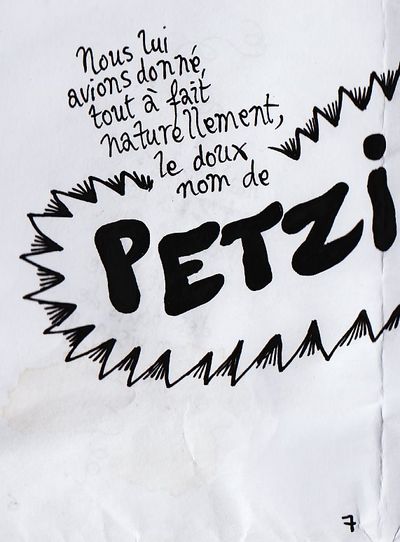 Nous lui
avions donné,
tout à fait
naturellement,
le doux
nom de
PETZi
7